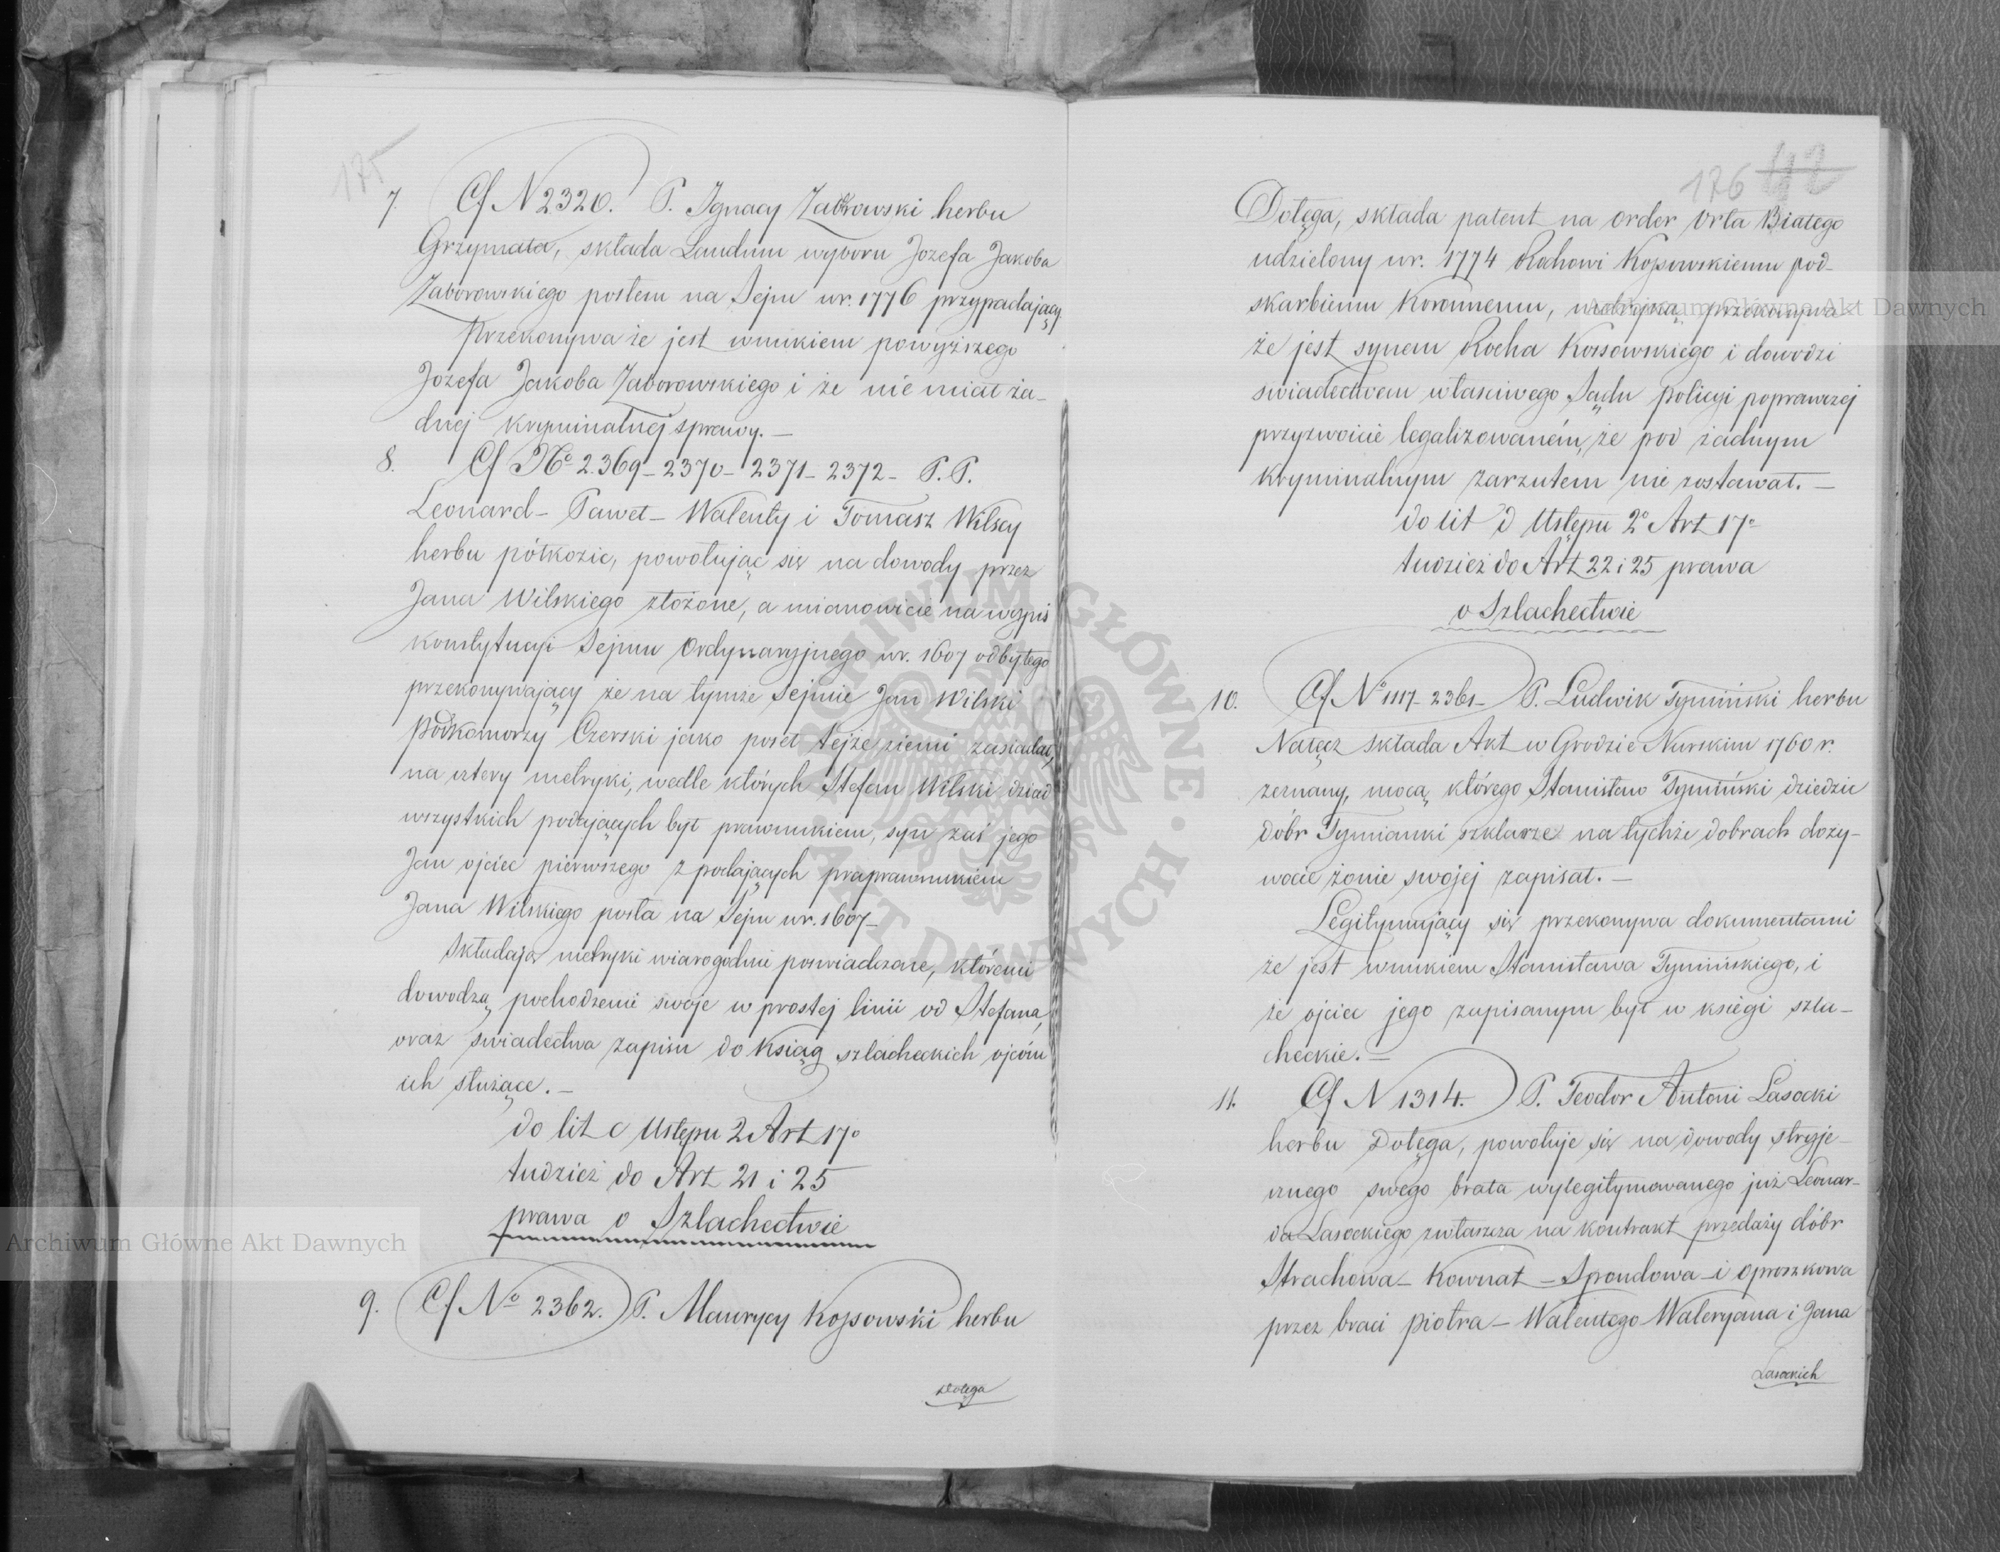 175
7. Cf N 2320. P. Ignacy Zaborowski herbu
Grzymała, składa Laudum wyboru Jozefa Jakoba
Zaborowskiego posłem na Sejm w r. 1776 przypadający.
Przekonywa że jest wnukiem powyższego
Jozefa Jakoba Zaborowskiego i że nie miał ża-
dnej kryminalnej sprawy. —
8. Cf No 2.369 – 2370 – 2371 – 2372 – P.P.
Leonard – Paweł – Walenty i Tomasz Wilscy
herbu półkozic, powołując się na dowody przez
Jana Wilskiego złożone, a mianowicie na wypis
konstytucyi Sejmu Ordynaryjnego w r. 1607 odbytego
przekonywający że na tymże Sejmie Jan Wilski
Podkomorzy Czerski jako poseł tejże ziemi zasiadał,
na cztery metryki, wedle których Stefan Wilski dziad
wszystkich podających był prawnukiem, syn zaś jego
Jan ojciec pierwszego z podających praprawnukiem
Jana Wilskiego posła na Sejm w r. 1607 –
Składają metryki wiarogodnie poswiadczone, któremi
dowodzą pochodzenie swoje w prostej linii od Stefana,
oraz swiadectwa zapisu do Ksiąg szlacheckich ojcóm
ich służące. –
do lit c Ustępu 2 Art 17o
tudzież do Art 21 i 25
prawa o Szlachectwie
9. Cf No 2362. P. Maurycy Kossowski herbu
Dołęga
176 42
Dołęga, składa patent na order Orła Białego
udzielony w r. 1774 Rochowi Kossowskiemu pod-
skarbiemu Koronnemu, metryką przekonywa
że jest synem Rocha Kossowskiego i dowodzi
swiadectwem własciwego Sądu policyi poprawczej
przyzwoicie legalizowaném, że pod żadnym
kryminalnym zarzutem nie zostawał. —
do lit D Ustępu 2o Art 17o
tudzież do Art 22 i 25 prawa
o Szlachectwie
10. Cf No 1117 – 2361 – P. Ludwik Tymiński herbu
Nałęcz składa Akt w Grodzie Nurskim 1760 r.
zeznany, mocą którego Stanisław Tymiński dziedzic
dóbr Tymianki szklarze na tychże dobrach doży-
wocie żonie swojej zapisał. —
Legitymujący się przekonywa dokumentami
że jest wnukiem Stanisława Tymińskiego, i
że ojciec jego zapisanym był w księgi szla-
checkie. —
11. Cf N 1314. P. Teodor Antoni Lasocki
herbu Dołęga, powołuje się na dowody stryje-
cznego swego brata wylegitymowanego już Leonar-
da Lasockiego zwłaszcza na kontrakt przedaży dóbr
Strachowa – Kownat – Srondowa – i Oproszkowa
przez braci Piotra – Walentego Waleryana i Jana
Lasockich
Archiwum Główne Akt Dawnych
Archiwum Główne Akt Dawnych
ARCHIWUM GŁÓWNE · AKT DAWNYCH ·